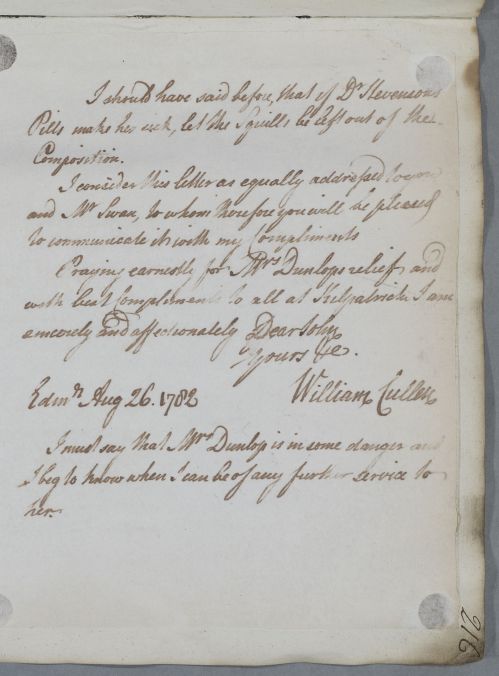 I should have said before, that if Dr Stevensons
Pills make her sick, let the Squills be left out of the
Composition.
I consider this letter as equally addressed to you
and Mr Swan, to whom therefore you will be pleased
to communicate it with my Compliments
Praying earnestly for Mrs Dunlops relief and
with best Compliments to all at Kilpatrick I am
sincerely and affectionately Dear John
Yours &c.
Edinr Aug 26. 1782 William Cullen
I must say that Mrs Dunlop is in some danger and
I beg to know when I can be of any further service to
her.
216